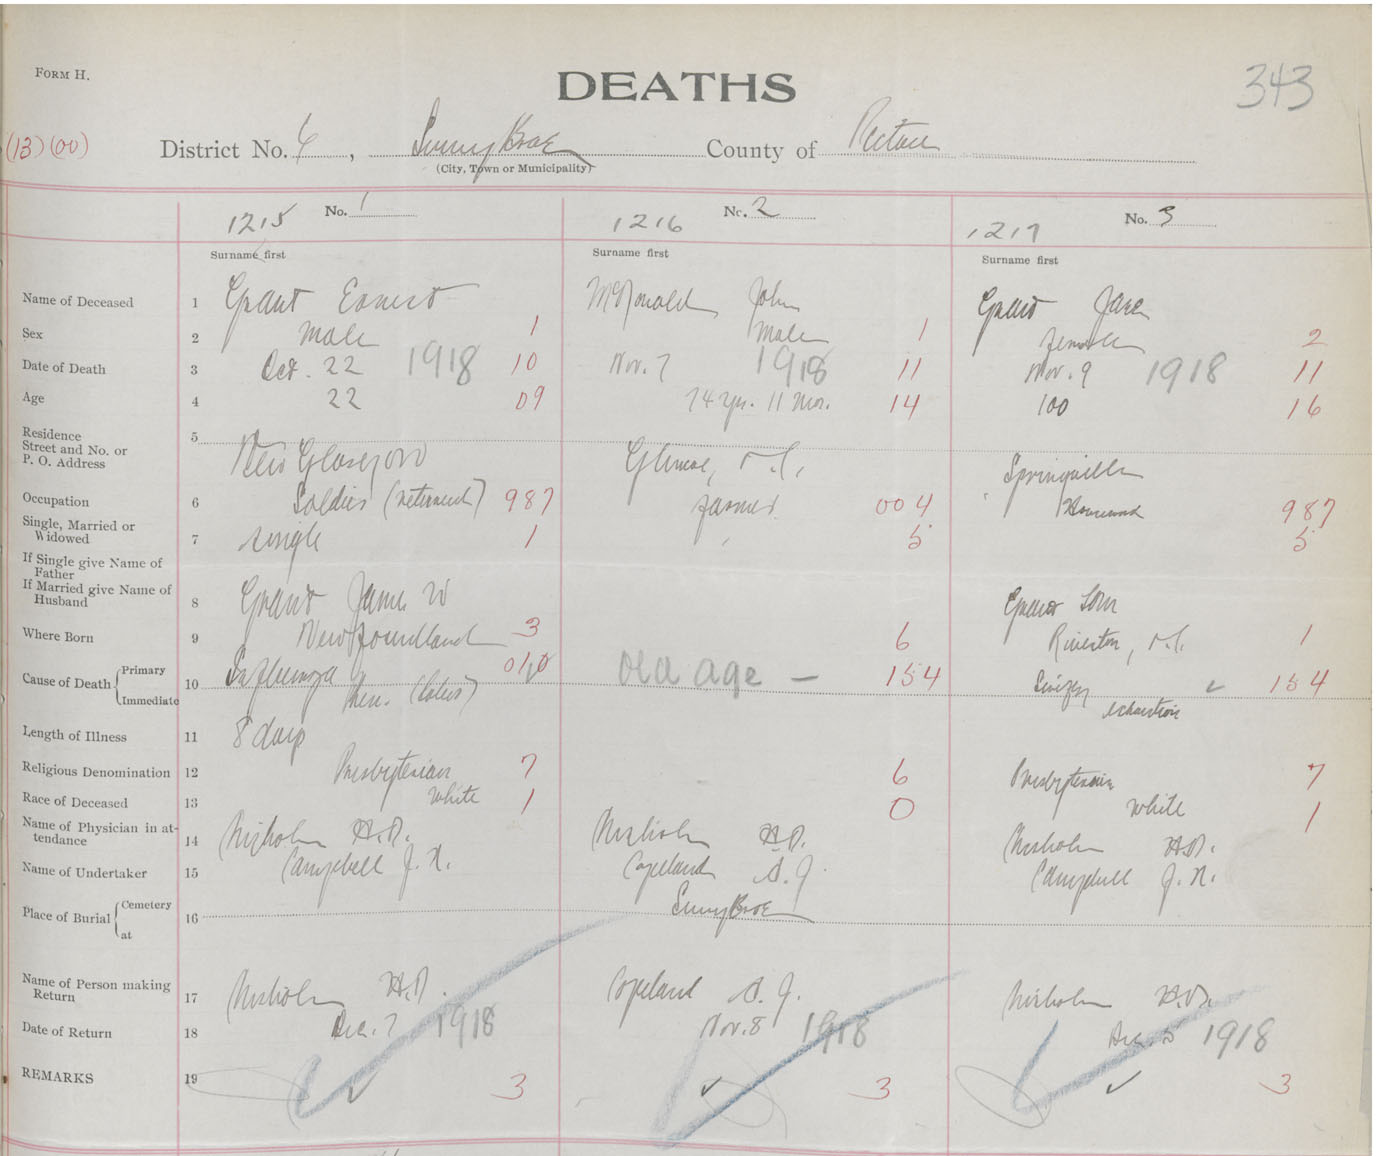 FORM H.
DEATHS
343
(13) (00)
District No. 6, Sunny Brae County of Pictou
(City, Town or Municipality)
1215 No. 1
1216 No. 2
1217 No. 3
Surname first Surname first Surname first
Name of Deceased 1 Grant Ernest McDonald John Grant Jane
Sex 2 male 1 male 1 female 2
Date of Death 3 Oct. 22 1918 10 Nov. 7 1918 11 Nov. 9 1918 11
Age 4 22 09 74 yrs. 11 mos. 14 100 16
Residence
Street and No. or
P. O. Address
5 New Glasgow Glencoe, N.S. Springville
Occupation 6 Soldier (returned) 987 farmer 004 987
Single, Married or
Widowed
7 single 1 5 5
If Single give Name of
Father
If Married give Name of
Husband
8 Grant James W Grant
Where Born 9 Newfoundland 3 6 Riverton, N.S. 1
Cause of Death { Primary
Immediate
10 Influenza 010 old age — 154 154
Pneu. (lobar) exhaustion
Length of Illness 11 8 days
Religious Denomination 12 Presbyterian 7 6 Presbyterian 7
Race of Deceased 13 white 1 0 white 1
Name of Physician in at-
tendance
14 H.D. H.D. H.D.
Name of Undertaker 15 Campbell J. N. Copeland A. J. Campbell J. N.
Place of Burial { Cemetery
at
16 Sunny Brae
Name of Person making
Return
17 H.D. Copeland A. J. H.D.
Date of Return 18 Dec. 7 1918 Nov. 8 1918 Dec. 1918
REMARKS 19 3 3 3